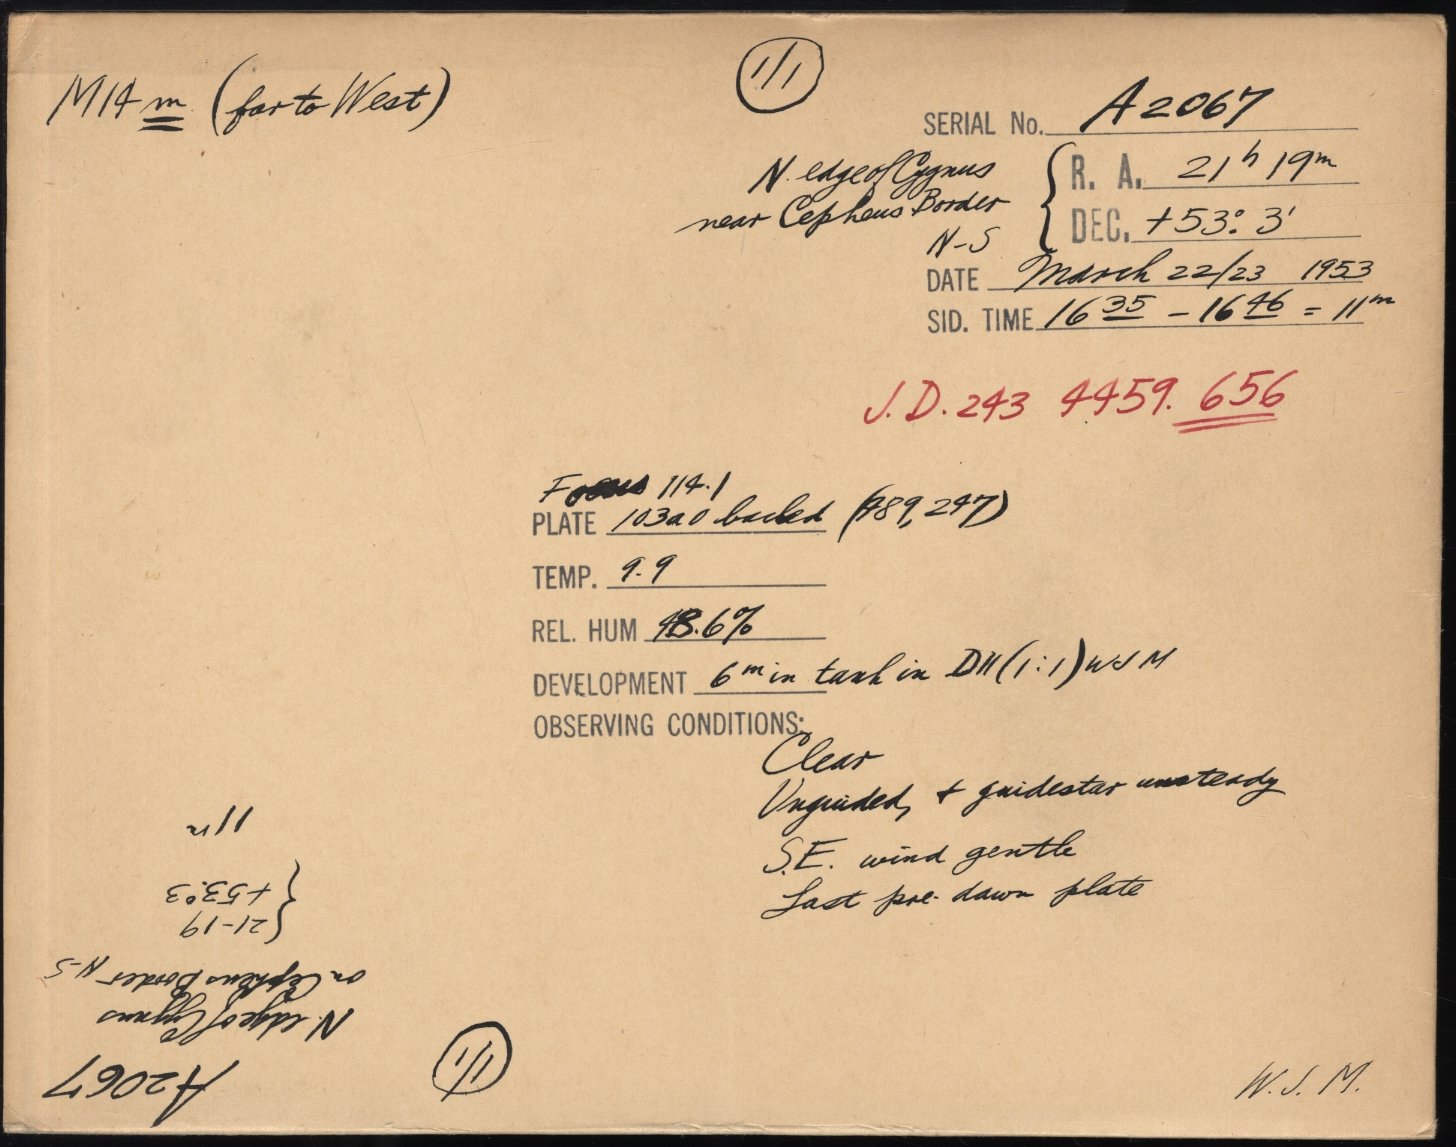 1/1
M14 m (far to West)
SERIAL No. A2067
N. edge of Cygnus
near Cepheus Border
N-S
R. A. 21h 19m
DEC. +53° 3'
DATE March 22/23 1953
SID. TIME 16 35 - 16 46 = 11m
J.D. 243 4459.656
Focus 114.1
PLATE 103a0 backed (489,247)
TEMP. 9.9
REL. HUM 48.6%
DEVELOPMENT 6 min tank in D11 (1:1) WJM
OBSERVING CONDITIONS:
Clear
Unguided, + guidestar unsteady
S.E. wind gentle
Last pre-dawn plate
W.J.M.
1/1
A2067
N. edge of Cygnus
on Cepheus Border N-S
21-19
+53°.3
11m